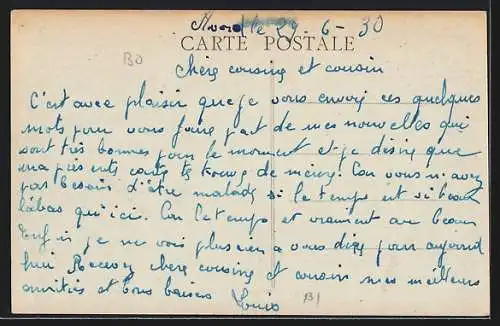 Avord le 29-6-30
CARTE POSTALE
BO
Chère cousine et cousin
C'est avec plaisir que je vous envoy ces quelques
mots pour vous faire part de mes nouvelles qui
sont très bonnes pour le moment et je désire que
ma présente carte te trouve de meme. Con vous n'avez
pas besoin d'être malade si le temps est si beau
labas qu'ici. Con le temps et vraiment au beau
Enfin je ne vois plus rien a vous dire pour aujourd
hui Recevez chere cousine et cousin mes meilleurs
amitiés et bons baisers Louis
B1